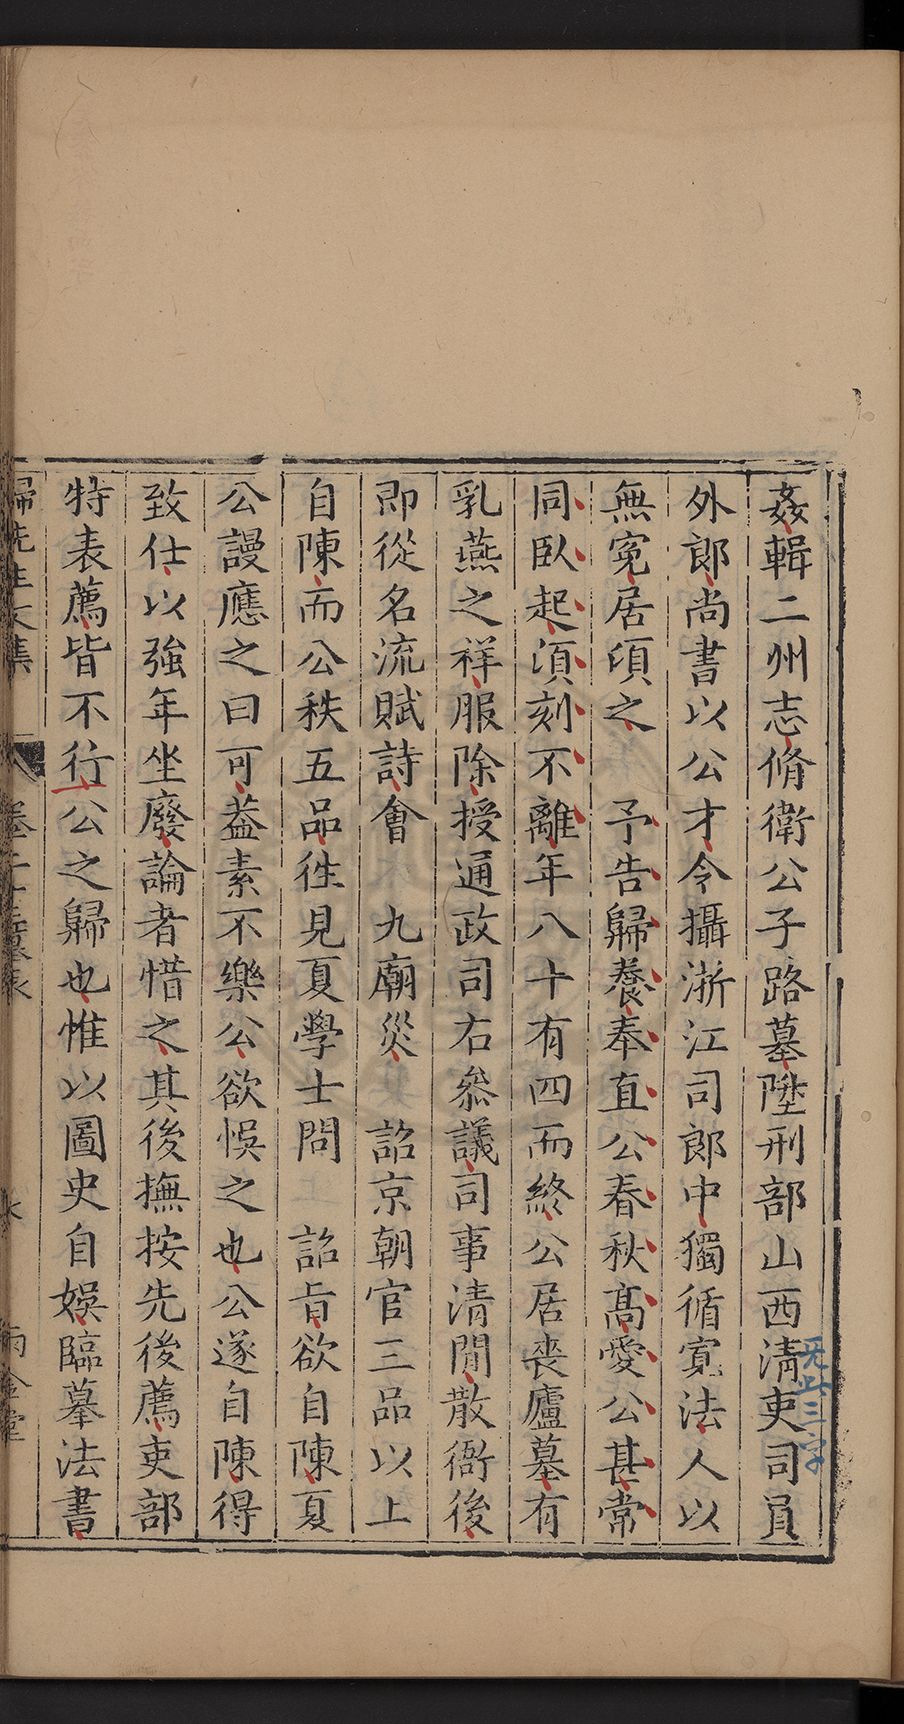 姦輯二州志脩衛公子路墓陞刑部山西清吏司員
外郎尚書以公才令攝浙江司郎中獨循寛法人以
無寃居頃之　予告歸養奉直公春秋髙愛公甚常
同臥起湏刻不離年八十有四而終公居喪廬墓有
乳燕之祥服除授通政司右叅議司事清閒散衙後
即從名流賦詩會　九廟災　詔京朝官三品以上
自陳而公秩五品徃見夏學士問　詔㫖欲自陳夏
公謾應之曰可葢素不樂公欲悞之也公遂自陳得
致仕以強年坐廢論者惜之其後撫按先後薦吏部
特表薦皆不行公之歸也惟以圖史自娛臨摹法書
歸先生文集
墓表
雨金堂
三字